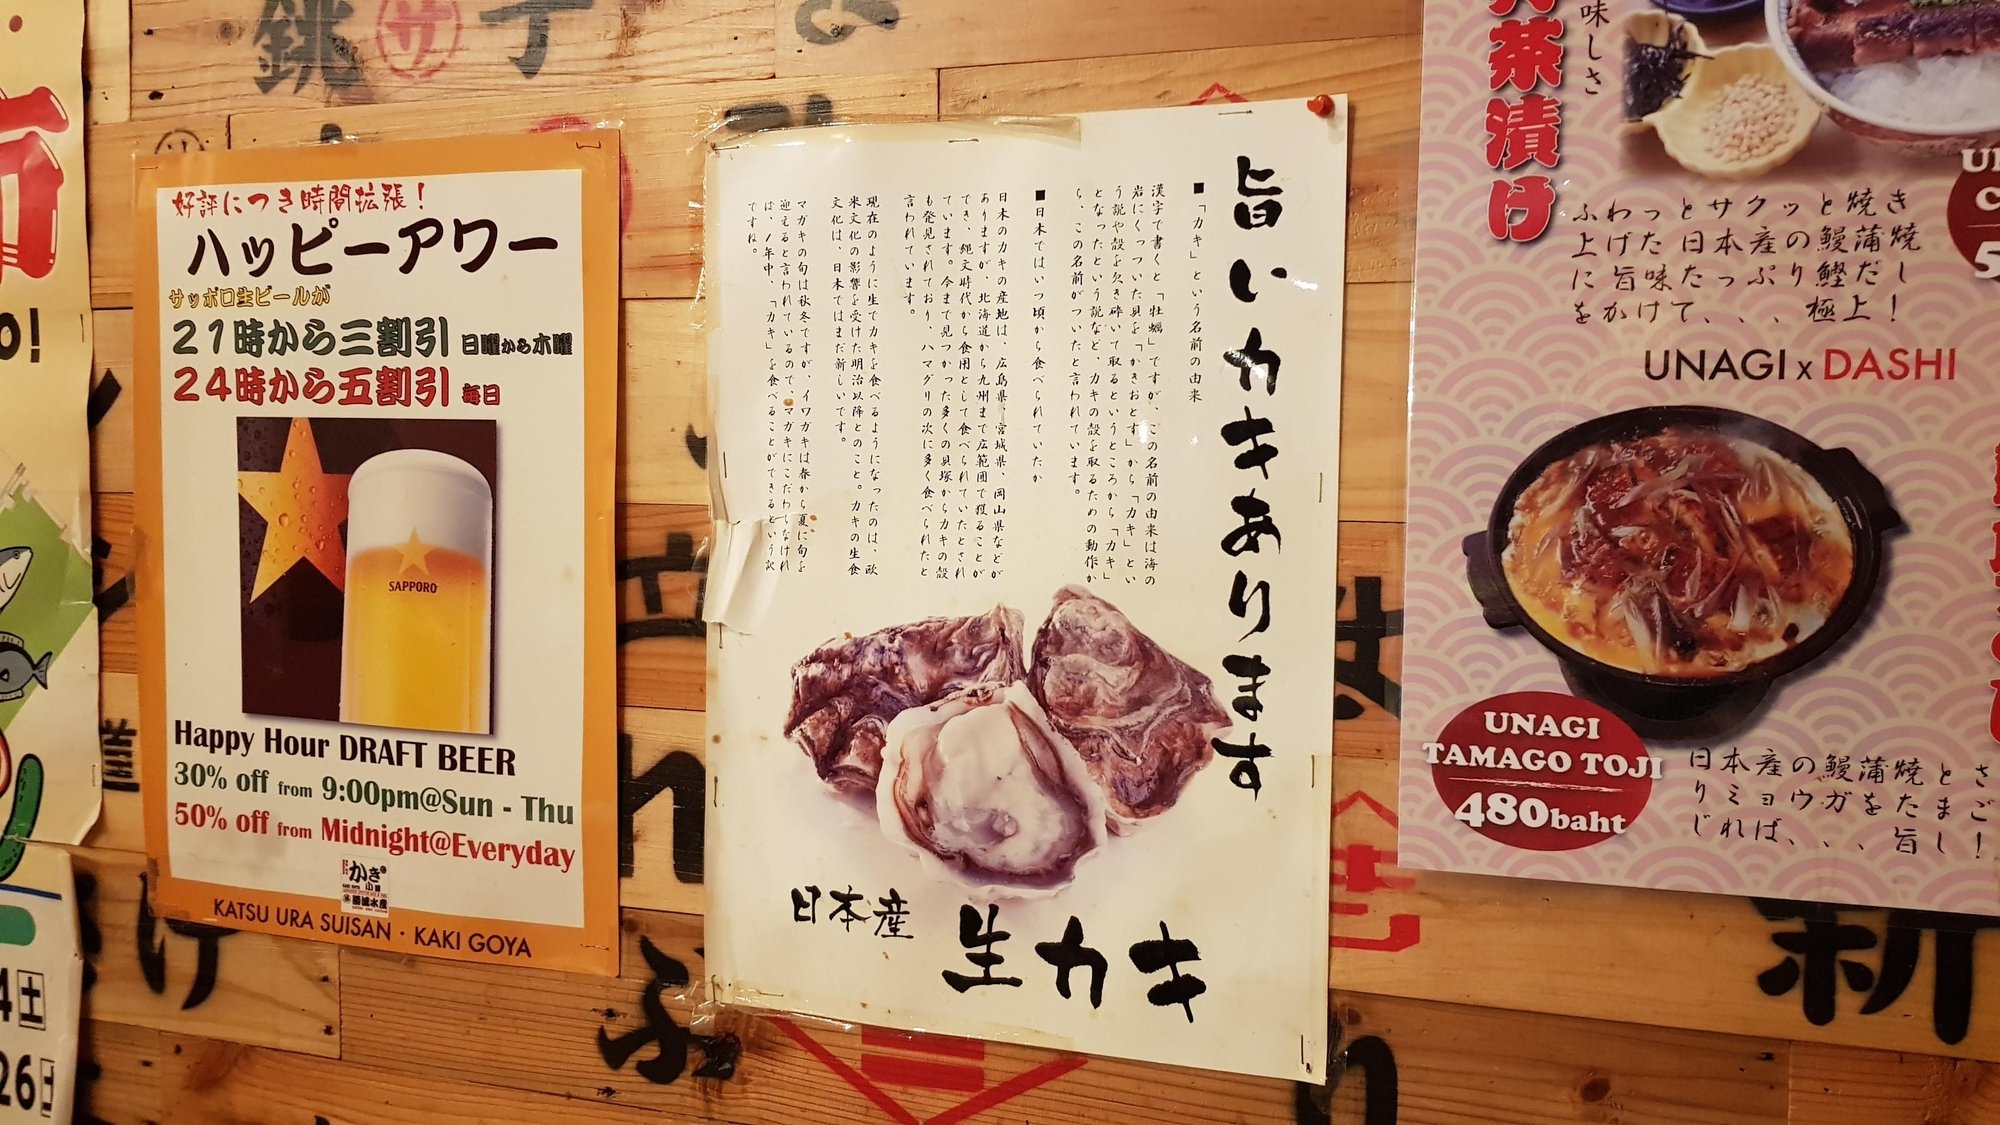 好評につき時間拡張！
ハッピーアワー
サッポロ生ビールが
21時から三割引 日曜から木曜
24時から五割引 毎日
SAPPORO
Happy Hour DRAFT BEER
30% off from 9:00pm@Sun - Thu
50% off from Midnight@Everyday
かき小屋
勝浦水産
KATSU URA SUISAN・KAKI GOYA
旨いカキあります
■「カキ」という名前の由来
漢字で書くと「牡蠣」ですが、この名前の由来は海の
岩にくっついた貝を「かきおとす」から「カキ」とい
う説や殻を欠き砕いて取るというところから「カキ」
となったという説など、カキの殻を取るための動作か
ら、この名前がついたと言われています。
■日本ではいつ頃から食べられていたか
日本のカキの産地は、広島県、宮城県、岡山県などが
ありますが、北海道から九州まで広範囲で獲ることが
でき、縄文時代から食用として食べられていたとされ
ています。今まで見つかった多くの貝塚からカキの殻
も発見されており、ハマグリの次に多く食べられたと
言われています。
現在のように生でカキを食べるようになったのは、欧
米文化の影響を受けた明治以降とのこと。カキの生食
文化は、日本ではまだ新しいです。
マガキの旬は秋冬ですが、イワガキは春から夏に旬を
迎えると言われているので、マガキにこだわらなけれ
ば、1年中、「カキ」を食べることができるという訳
ですね。
日本産
生カキ
茶漬け
味しさ
ふわっとサクッと焼き
上げた日本産の鰻蒲焼
に旨味たっぷり鰹だし
をかけて、、、極上！
UNAGI x DASHI
UNAGI
TAMAGO TOJI
480baht
日本産の鰻蒲焼とさ
りミョウガをたまご
じれば、、、旨し！
銚
サ
新
ぶ
け
土
26